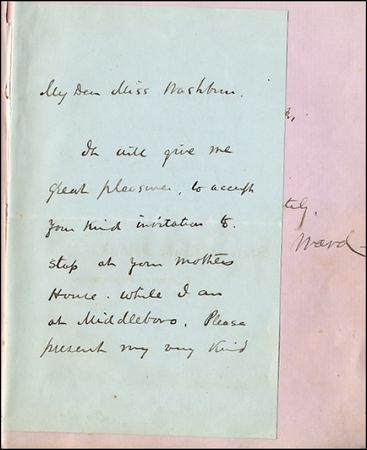 My Dear Miss Washburn.
It will give me
great pleasure, to accept
your kind invitation to
stop at your mothers
House. while I am
at Middleboro. Please
present my very kind
Ward